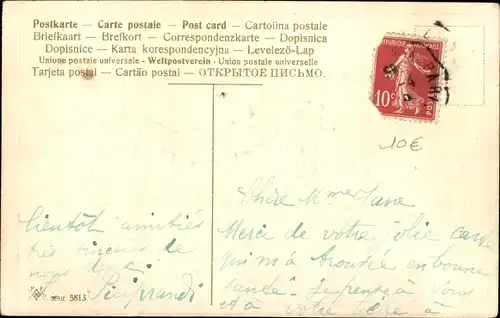 Postkarte – Carte postale – Post card – Cartolina postale
Briefkaart – Brefkort – Correspondenzkarte – Dopisnica
Dopisnice – Karta korespondencyjna – Levelező-Lap
Unione postale universale – Weltpostverein – Union postale universelle
Tarjeta postal – Cartão postal – ОТКРЫТОЕ ПИСЬМО.
10c
POSTES
10€
Chère Mme Jane
Merci de votre jolie carte
qui m'a trouvée en bonne
santé. je pense à vous
et à votre
bientôt amitiés
très sincères de
nous
SERIE 5813